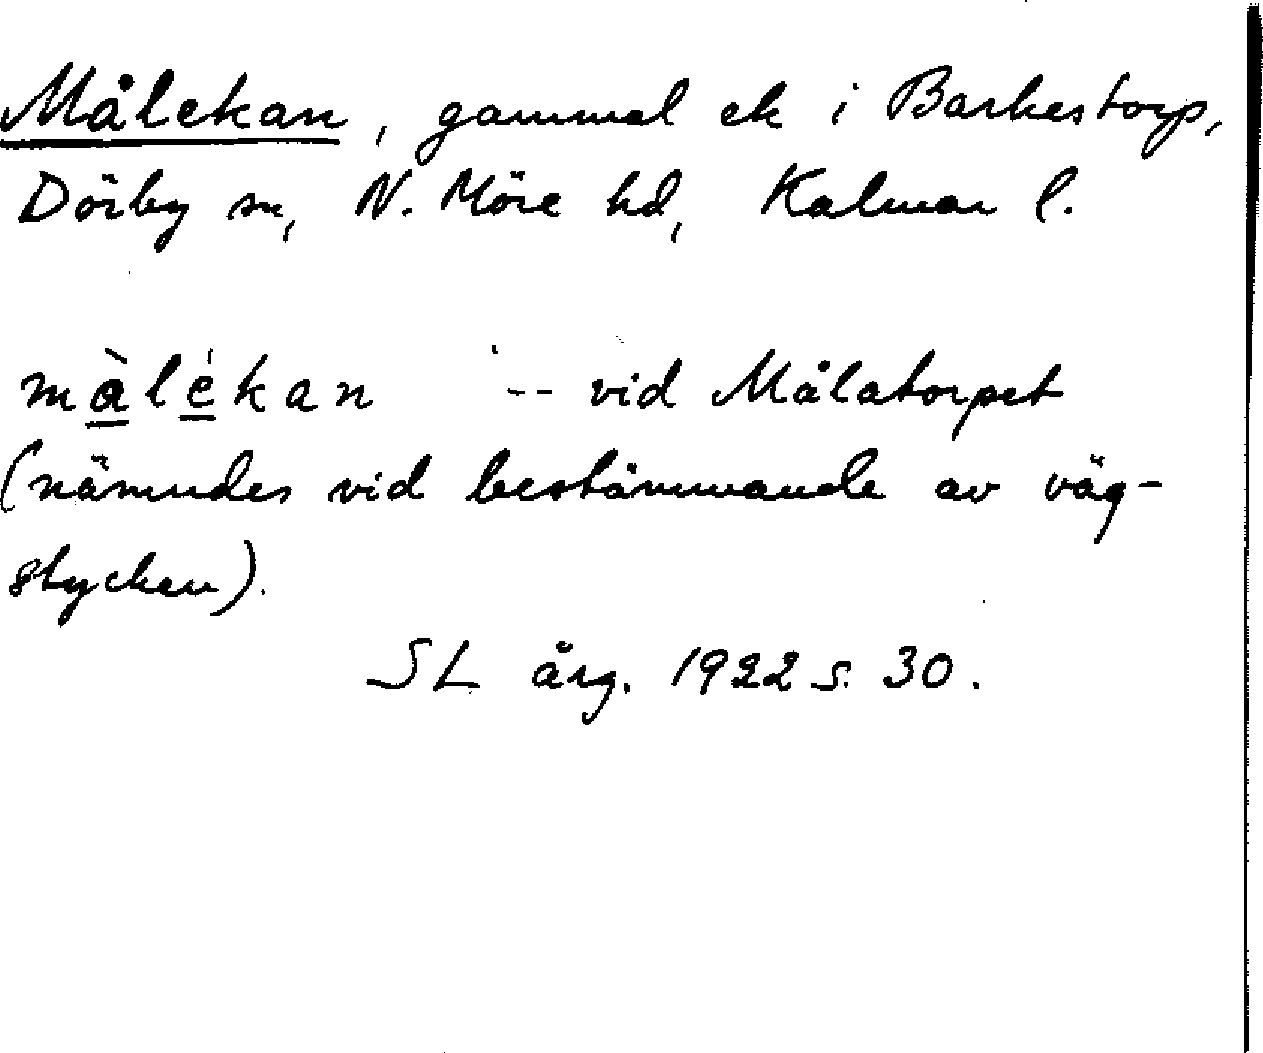 Målekan, gammal ek i Barkestorp,
Dörby sn, N. Möre hd, Kalmar l.
màlékan -- vid Målatorpet
(nämndes vid bestämmande av väg-
stycken).
SL årg. 1922 s. 30.